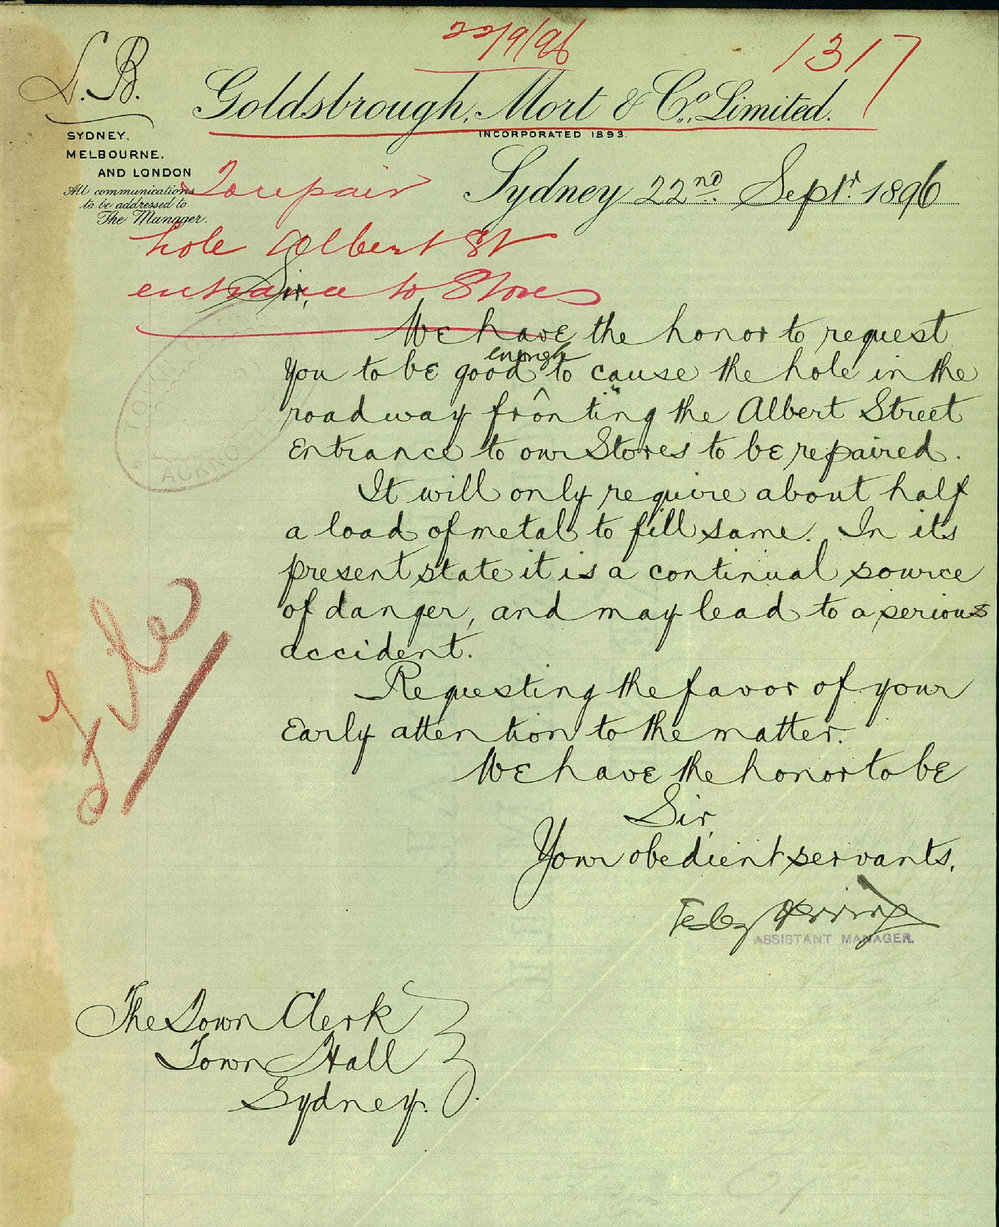 22/9/96
1317
L.B.
Goldsbrough, Mort & Co., Limited.
INCORPORATED 1893.
SYDNEY,
MELBOURNE,
AND LONDON
All communications
to be addressed to
The Manager.
Sydney 22nd Septr 1896
To repair
hole Albert St
entrance to Stores
Sir,
We have the honor to request
you to be good enough to cause the hole in the
roadway fronting the Albert Street
Entrance to our Stores to be repaired.
It will only require about half
a load of metal to fill same. In its
present state it is a continual source
of danger, and may lead to a serious
accident.
Requesting the favor of your
Early attention to the matter.
We have the honor to be
Sir,
Your obedient servants,
ASSISTANT MANAGER.
File
The Town Clerk
Town Hall
Sydney.